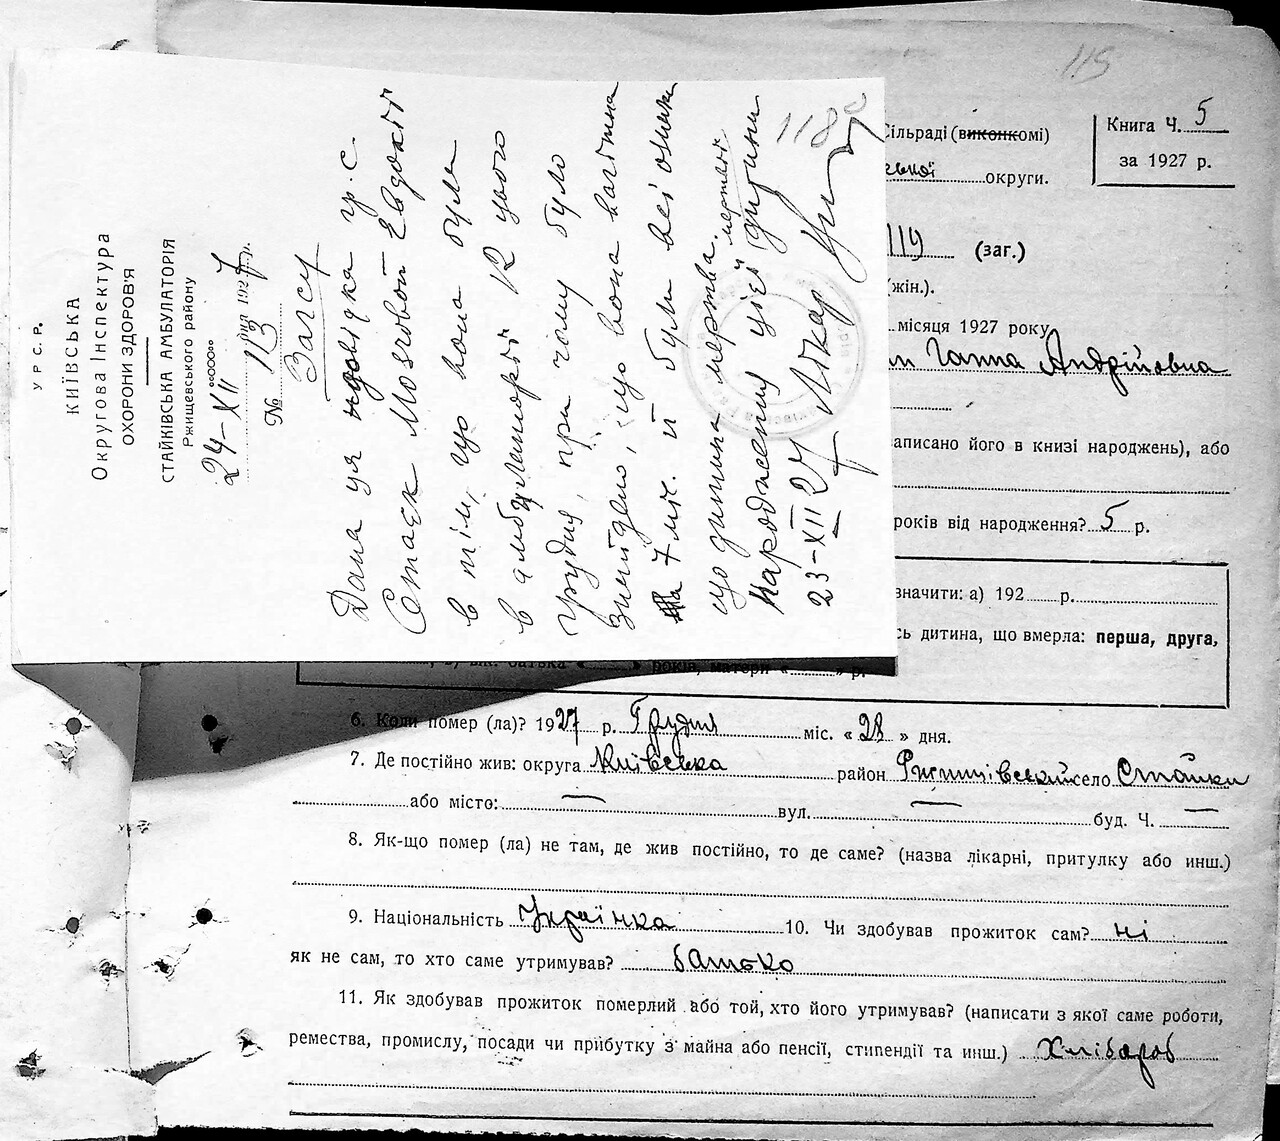 У С Р Р.
КИЇВСЬКА
Округова Інспектура
ОХОРОНИ ЗДОРОВ'Я
СТАЙКІВСЬКА АМБУЛАТОРІЯ
Ржищевського району
24-XII 1927 р.
№ 113
Загсу
Дана ця довідка гр. с.
Стаєк Мозговой Евдокії
в тім, що вона була
в амбулаторії 12 цього
грудня, при чому було
знайдено, що вона вагітна
на 7 міс. й були всі ознаки
що дитина мертва.
народження цієї дитини
23-XII 27 Лікар
118
115
Сільраді (виконкомі)
ської округи.
Книга Ч. 5
за 1927 р.
119 (заг.)
(жін.).
місяця 1927 року
Ганна Андрійовна
записано його в книзі народжень), або
років від народження? 5 р.
значити: а) 192 р.
сь дитина, що вмерла: перша, друга,
батька « » років, матери « » р.
6. Коли помер (ла)? 1927 р. Грудня міс. « 28 » дня.
7. Де постійно жив: округа Київська район Ржищівський село Стайки
або місто: — вул. — буд. Ч. —
8. Як-що помер (ла) не там, де жив постійно, то де саме? (назва лікарні, притулку або инш.)
9. Національність Українка 10. Чи здобував прожиток сам? ні
як не сам, то хто саме утримував? батько
11. Як здобував прожиток померлий або той, хто його утримував? (написати з якої саме роботи,
ремества, промислу, посади чи прибутку з майна або пенсії, стипендії та инш.) Хлібороб